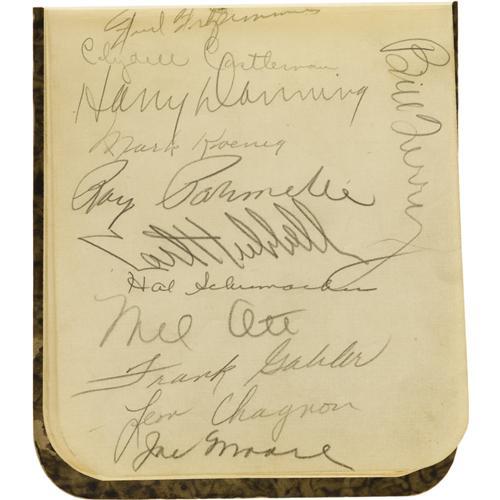 Fred Fitzsimmons
Clydell Castleman
Harry Danning
Mark Koenig
Roy Parmelee
Hal Schumacher
Mel Ott
Frank Gabler
Leon Chagnon
Joe Moore
Bill Terry